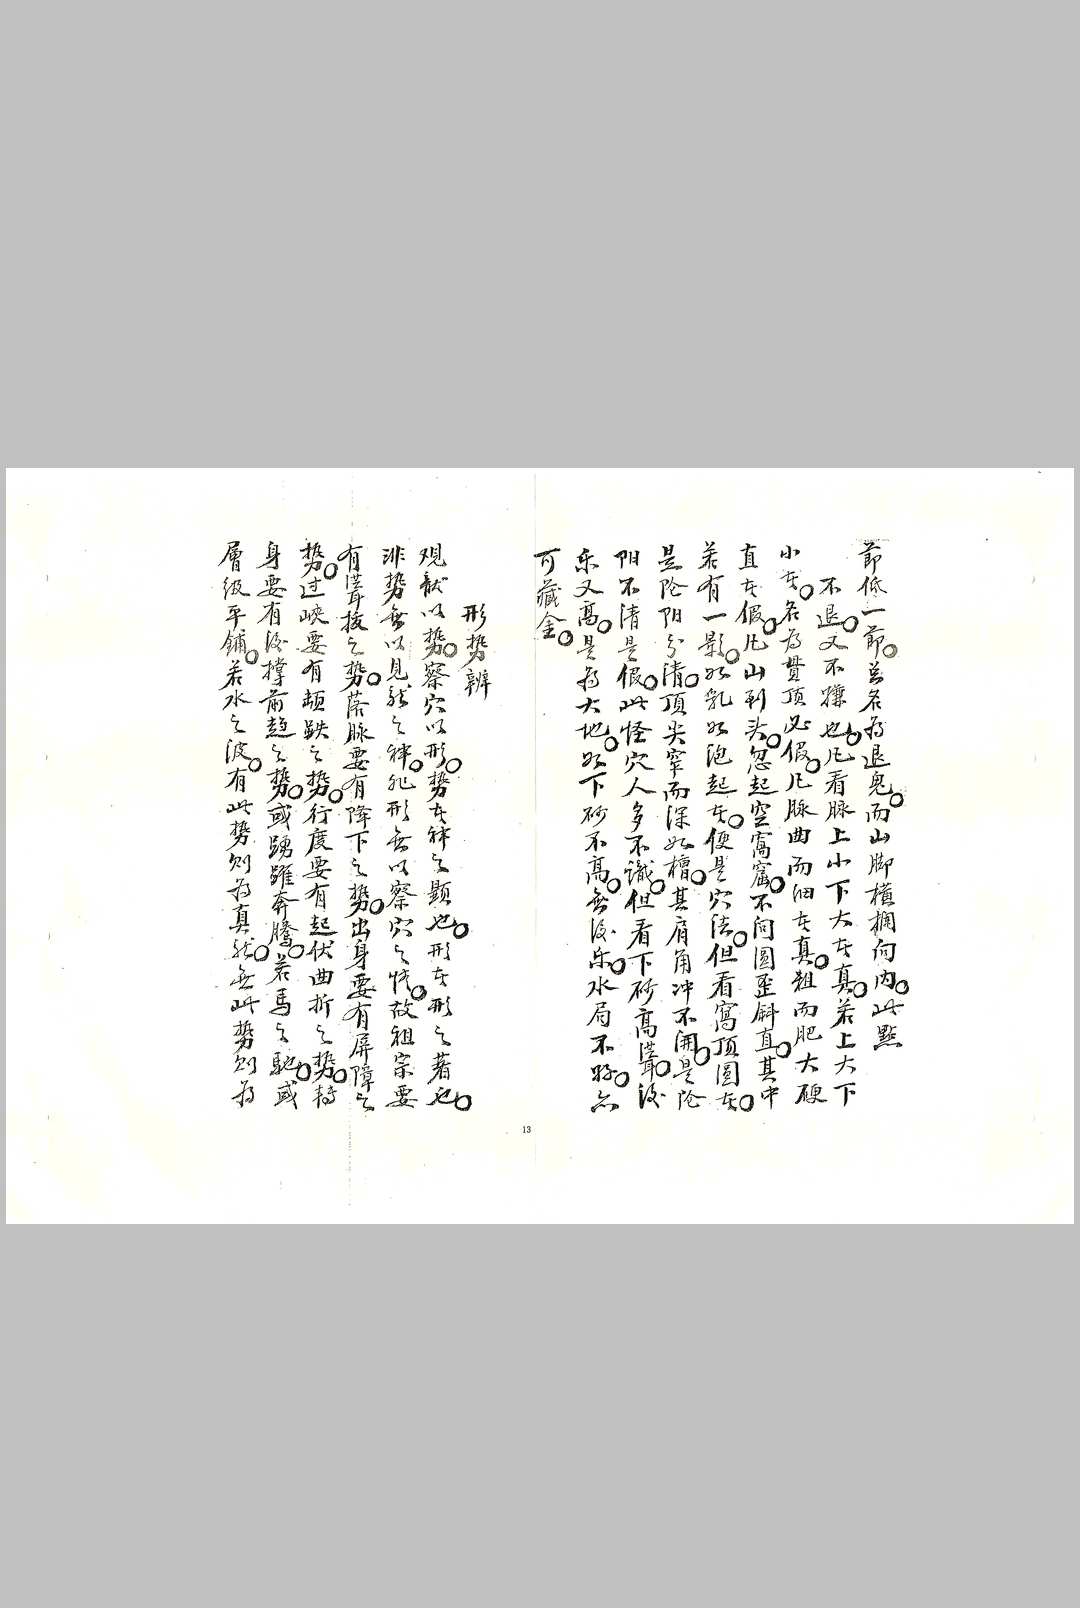 節低一節。並名為退鬼。而山脚橫攔向内。此點
不退。又不䠯也。凡看脉上小下大者真。若上大下
小者。名為貫頂必假。凡脉曲而细者真。粗而肥大硬
直者假。凡山到头。忽起空窝窟。不问圆歪斜直。其中
若有一影。如乳如泡起者。便是穴法。但看窝顶圆者。
是阴阳分清。顶尖窄而深如槽。其肩角冲不開。是阴
阳不清是假。此怪穴人多不識。但看下砂高聳。後
乐又高。是為大地。如下砂不高。無後乐。水局不好。亦
可藏金。
形势辨
观龍以势。察穴以形。势者神之顯也。形者形之著也。
非势無以見龍之神。非形無以察穴之情。故祖宗要
有聳拔之势。落脉要有降下之势。出身要有屏障之
势。过峽要有頓跌之势。行度要有起伏曲折之势。转
身要有後撑前趋之势。或踴躍奔騰。若馬之馳。或
層级平鋪。若水之波。有此势则為真龍。無此势则為
13